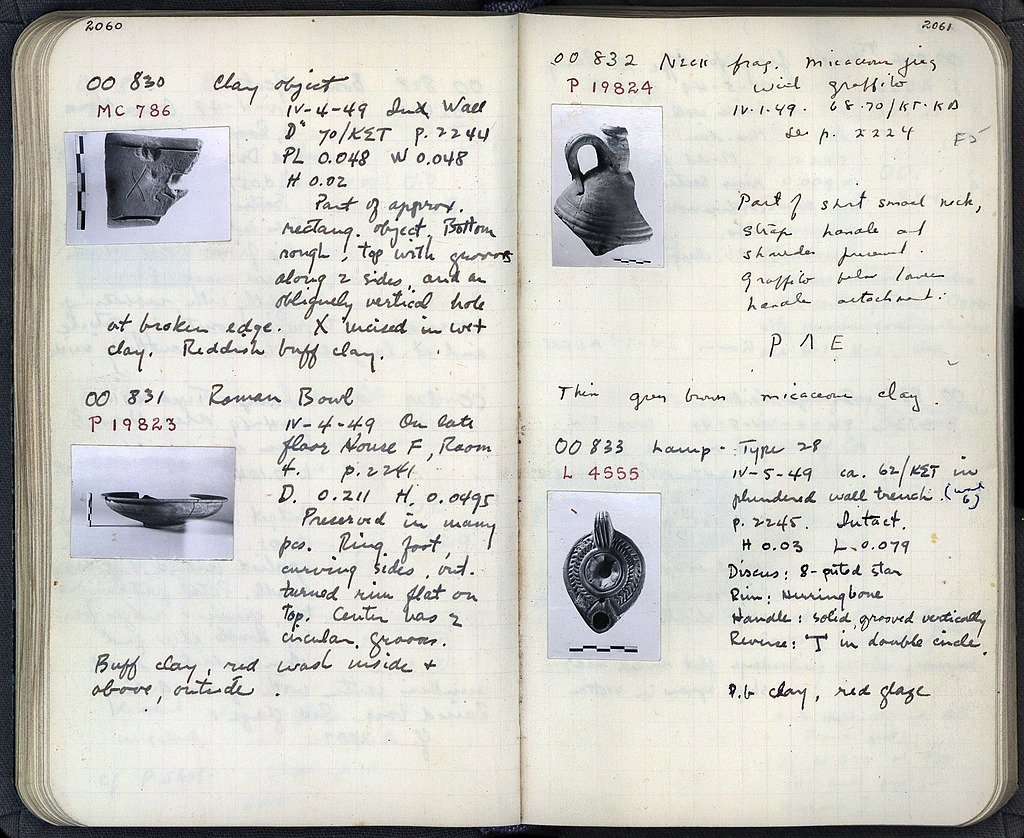 2060
OO 830 Clay object
MC 786
IV-4-49 Wall
D" 70/KΣT p. 2244
PL 0.048 W 0.048
H 0.02
Part of approx.
rectang. object. Bottom
rough, top with grooves
along 2 sides, and an
obliquely vertical hole
at broken edge. X incised in wet
clay. Reddish buff clay.
OO 831 Roman Bowl
P 19823
IV-4-49 On late
floor House F, Room
4. p. 2241
D. 0.211 H. 0.0495
Preserved in many
pcs. Ring foot,
curving sides, out-
turned rim flat on
top. Center has 2
circular grooves.
Buff clay, red wash inside +
above, outside.
2061
OO 832 Neck frag. micaceous jug
P 19824
with graffito
IV-1-49. 68-70/KΓ-KΔ
See p. 2224
Part of short small neck,
strap handle and
shoulder preserved.
Graffito below lower
handle attachment:
P Λ E
Thin grey brown micaceous clay.
OO 833 Lamp - Type 28
L 4555
IV-5-49 ca. 62/KΣT in
plundered wall trench.
p. 2245. Intact.
H 0.03 L. 0.079
Discus: 8-pointed star
Rim: Herringbone
Handle: solid, grooved vertically
Reverse: T in double circle.
P.b clay, red glaze